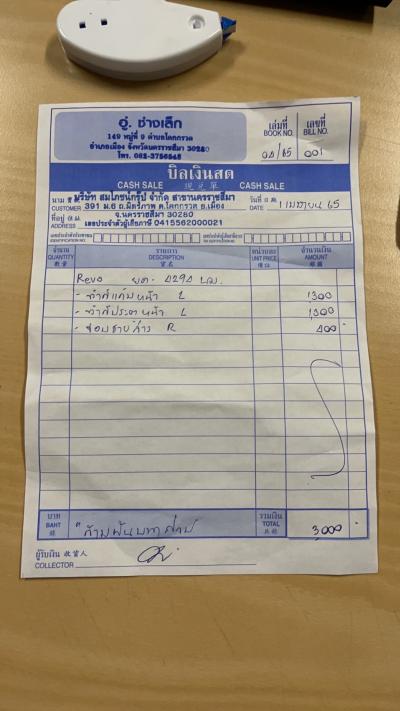 อู่. ช่างเล็ก
149 หมู่ที่ 9 ตำบลโคกกรวด
อำเภอเมือง จังหวัดนครราชสีมา 30280
โทร.
เล่มที่ เลขที่
BOOK NO. BILL NO.
04/65 001
บิลเงินสด
CASH SALE 現兌單 CASH SALE
นาม บริษัท สมโภชน์กรุ๊ป จำกัด สาขานครราชสีมา
CUSTOMER 391 ม.6 ถ.มิตรภาพ ต.โคกกรวด อ.เมือง
วันที่
DATE 1 เมษายน 65
ที่อยู่ จ.นครราชสีมา 30280
ADDRESS เลขประจำตัวผู้เสียภาษี 0415562000021
จำนวน รายการ หน่วยละ จำนวนเงิน
QUANTITY DESCRIPTION UNIT PRICE AMOUNT
Revo ผต. 4294 นม.
- ทำสีแก้มหน้า L 1300
- ทำสีประตูหน้า L 1,300
- ซ่อมชายล่าง R 400
บาท สามพันบาทถ้วน รวมเงิน 3,000
BAHT TOTAL
ผู้รับเงิน 收貨人
COLLECTOR